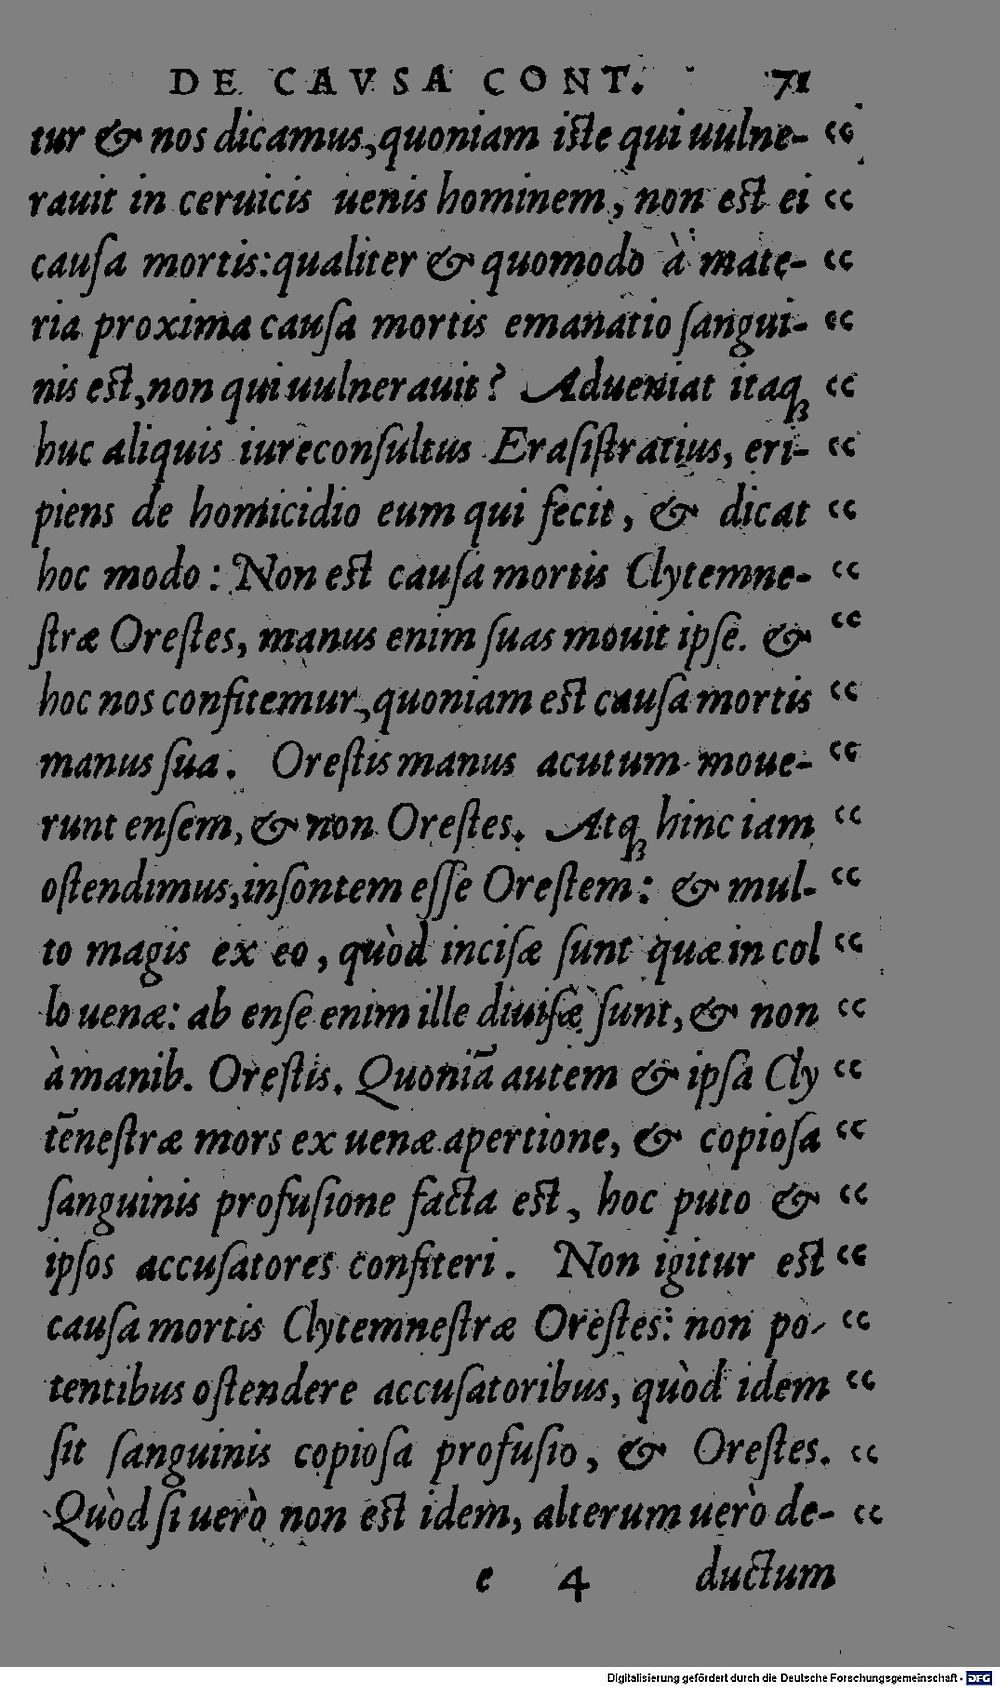 DE CAVSA CONT. 71
tur & nos dicamus, quoniam iſte qui uulne- “
rauit in ceruicis uenis hominem, non est ei “
cauſa mortis: qualiter & quomodo à mate- “
ria proxima cauſa mortis emanatio ſangui- “
nis est, non qui uulnerauit? Adueniat itaqꝫ “
huc aliquis iureconſultus Eraſiſtratius, eri- “
piens de homicidio eum qui fecit, & dicat “
hoc modo: Non est cauſa mortis Clytemne- “
ſtræ Oreſtes, manus enim ſuas mouit ipſe. & “
hoc nos confitemur, quoniam est cauſa mortis “
manus ſua. Oreſtis manus acutum moue- “
runt enſem, & non Oreſtes. Atqꝫ hinc iam “
oſtendimus, inſontem eſſe Oreſtem: & mul- “
to magis ex eo, quòd inciſæ ſunt quæ in col “
lo uenæ: ab enſe enim ille diuiſæ ſunt, & non “
à manib. Oreſtis. Quoniā autem & ipſa Cly “
tēneſtræ mors ex uenæ apertione, & copioſa “
ſanguinis profuſione facta est, hoc puto & “
ipſos accuſatores confiteri. Non igitur est “
cauſa mortis Clytemneſtræ Oreſtes: non po- “
tentibus oſtendere accuſatoribus, quòd idem “
ſit ſanguinis copioſa profuſio, & Oreſtes. “
Quòd ſi uerò non est idem, alterum uerò de- “
e 4 ductum
Digitalisierung gefördert durch die Deutsche Forschungsgemeinschaft - DFG